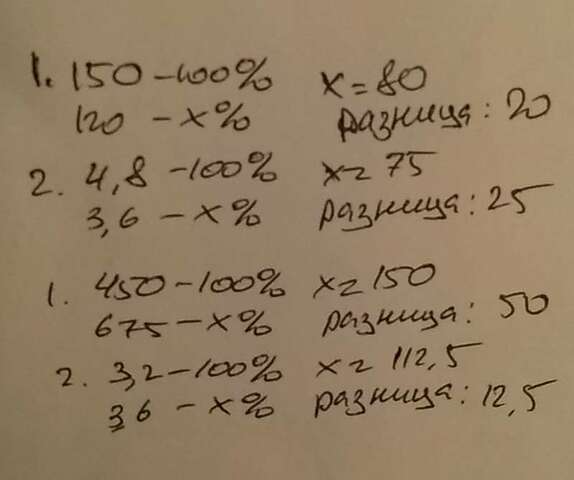 1. 150 - 100% x = 80
120 - x% разница: 20
2. 4,8 - 100% x = 75
3,6 - x% разница: 25
1. 450 - 100% x = 150
675 - x% разница: 50
2. 3,2 - 100% x = 112,5
3,6 - x% разница: 12,5